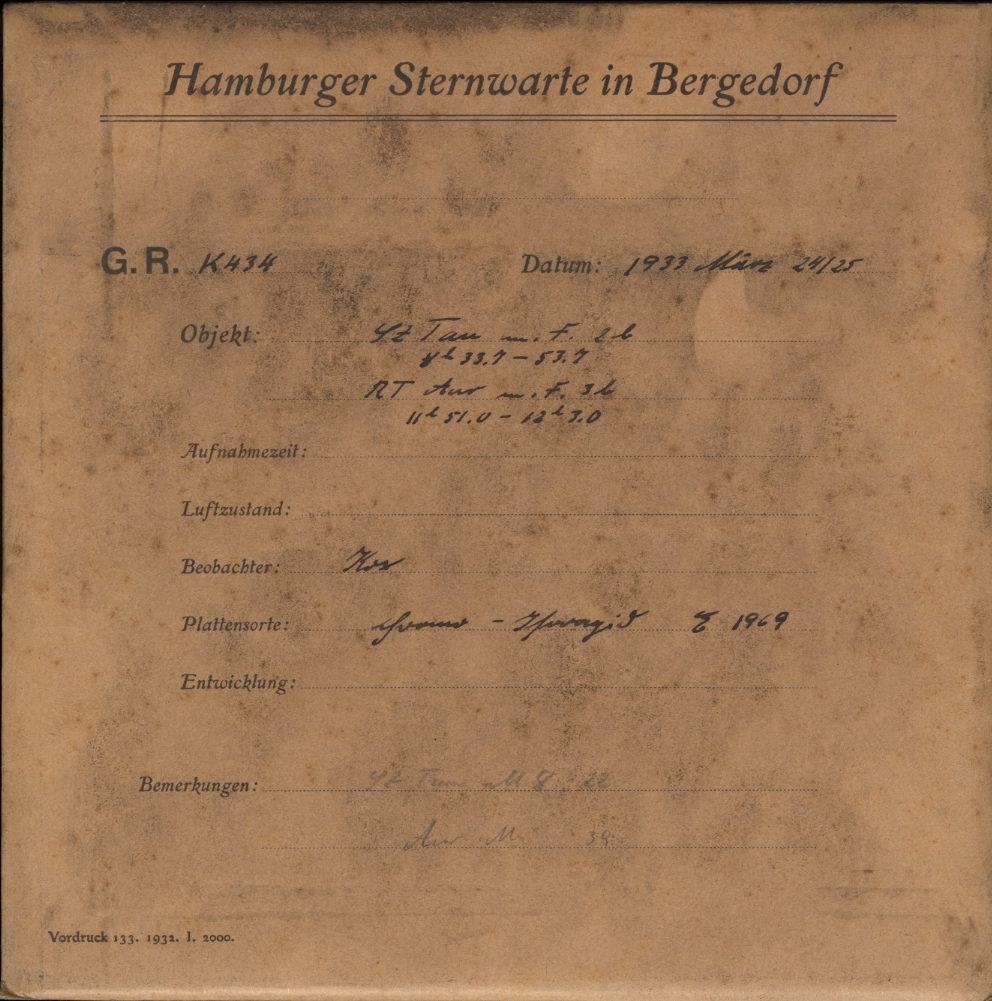 Hamburger Sternwarte in Bergedorf
G.R. K434 Datum: 1933 März 24/25
Objekt: SZ Tau m. F. 2b
8h 33.7 – 53.7
RT Aur m. F. 3b
11h 51.0 – 12h 3.0
Aufnahmezeit:
Luftzustand:
Beobachter:
Plattensorte: Chromo – Isorapid E 1969
Entwicklung:
Bemerkungen: SZ Tau M 8 22
Aur M 38
Vordruck 133. 1932. I. 2000.